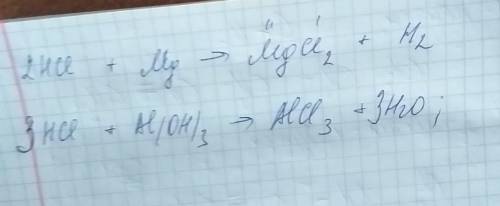 2HCl + Mg → MgCl₂ + H₂
3HCl + Al(OH)₃ → AlCl₃ + 3H₂O;